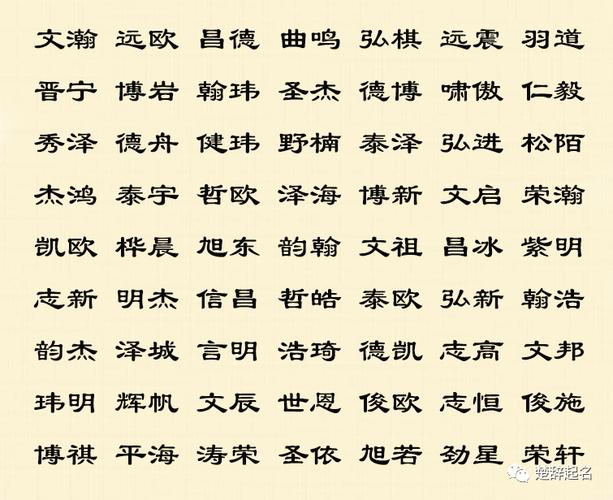 文瀚 远欧 昌德 曲鸣 弘棋 远震 羽道
晋宁 博岩 翰玮 圣杰 德博 啸傲 仁毅
秀泽 德舟 健玮 野楠 泰泽 弘进 松陌
杰鸿 泰宇 哲欧 泽海 博新 文启 荣瀚
凯欧 桦晨 旭东 韵翰 文祖 昌冰 紫明
志新 明杰 信昌 哲皓 泰欧 弘新 翰浩
韵杰 泽城 言明 浩琦 德凯 志高 文邦
玮明 辉帆 文辰 世恩 俊欧 志恒 俊施
博祺 平海 涛荣 圣依 旭若 劲星 荣轩
楚辞起名